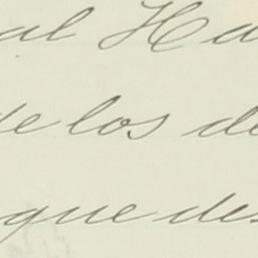 al Ha
de los de
que des